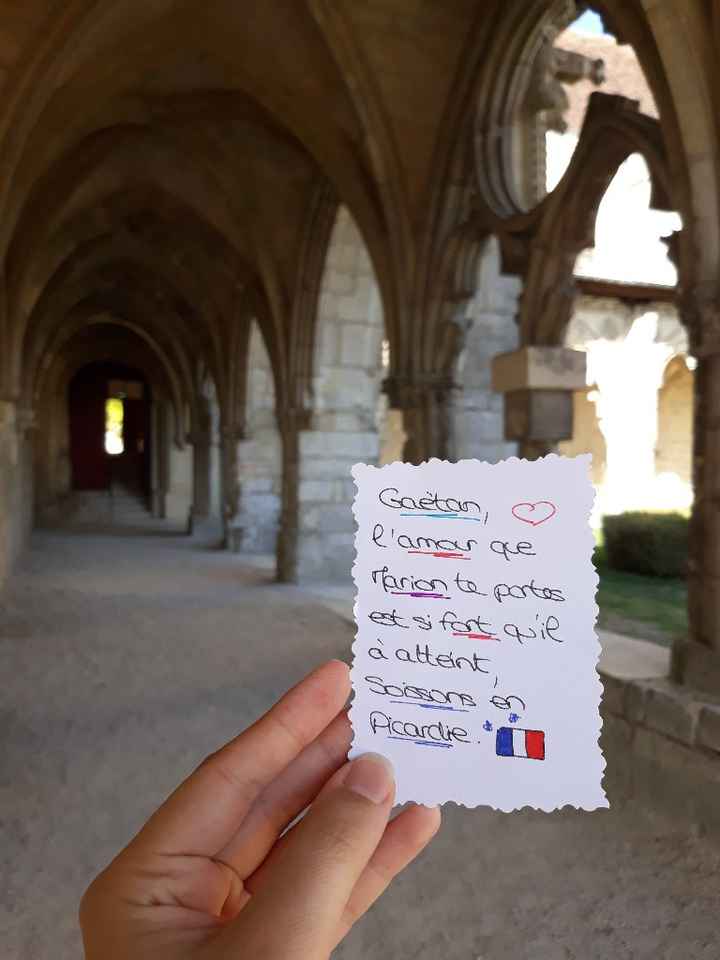 Gaëtan,
l'amour que
Marion te portes
est si fort qu'il
à atteint,
Soissons en
Picardie.